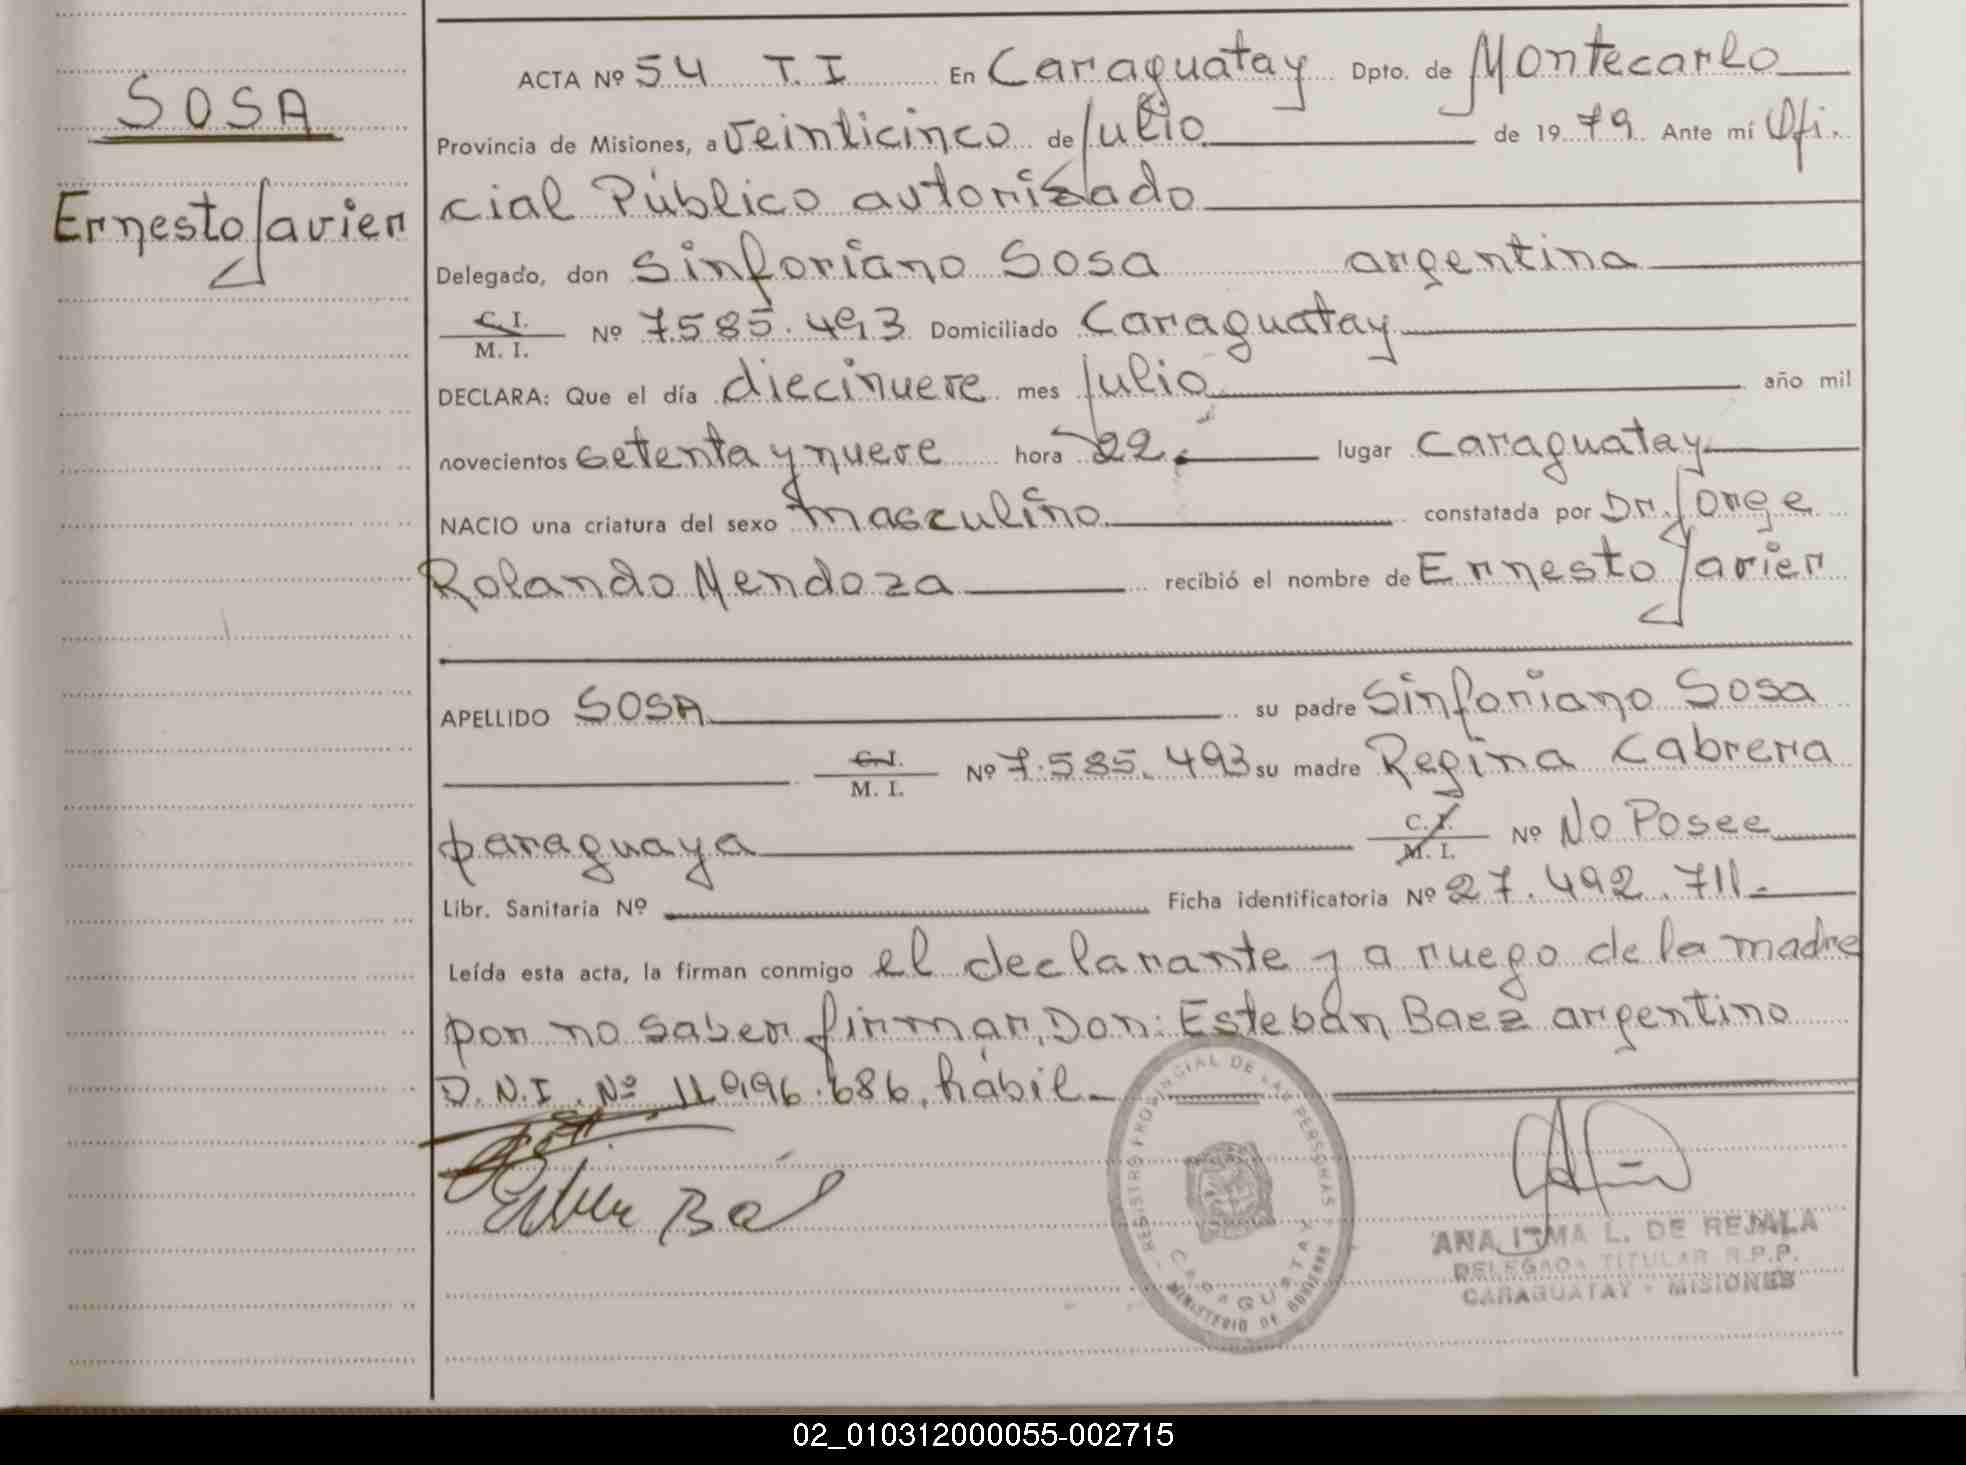 SOSA
Ernesto Javier
ACTA Nº 54 T. I En Caraguatay Dpto. de Montecarlo
Provincia de Misiones, a veinticinco de Julio de 1979 Ante mí Ofi.
cial Público autorizado
Delegado, don Sinforiano Sosa argentina
C. I.
M. I. Nº 7.585.493 Domiciliado Caraguatay
DECLARA: Que el día diecinueve mes Julio año mil
novecientos setenta y nueve hora 22. lugar Caraguatay
NACIO una criatura del sexo masculino constatada por Dr. Jorge
Rolando Mendoza recibió el nombre de Ernesto Javier
APELLIDO SOSA su padre Sinforiano Sosa
C. I.
M. I. Nº 7.585.493 su madre Regina Cabrera
paraguaya C. I.
M. I. Nº No Posee
Libr. Sanitaria Nº Ficha identificatoria Nº 27.492.711.
Leída esta acta, la firman conmigo el declarante y a ruego de la madre
por no saber firmar, Don: Esteban Baez argentino
D.N.I. Nº 11.996.686, hábil.
REGISTRO PROVINCIAL DE LAS PERSONAS
CARAGUATAY
MINISTERIO DE GOBIERNO
ANA IRMA L. DE REJALA
DELEGADA TITULAR R.P.P.
CARAGUATAY - MISIONES
02_010312000055-002715